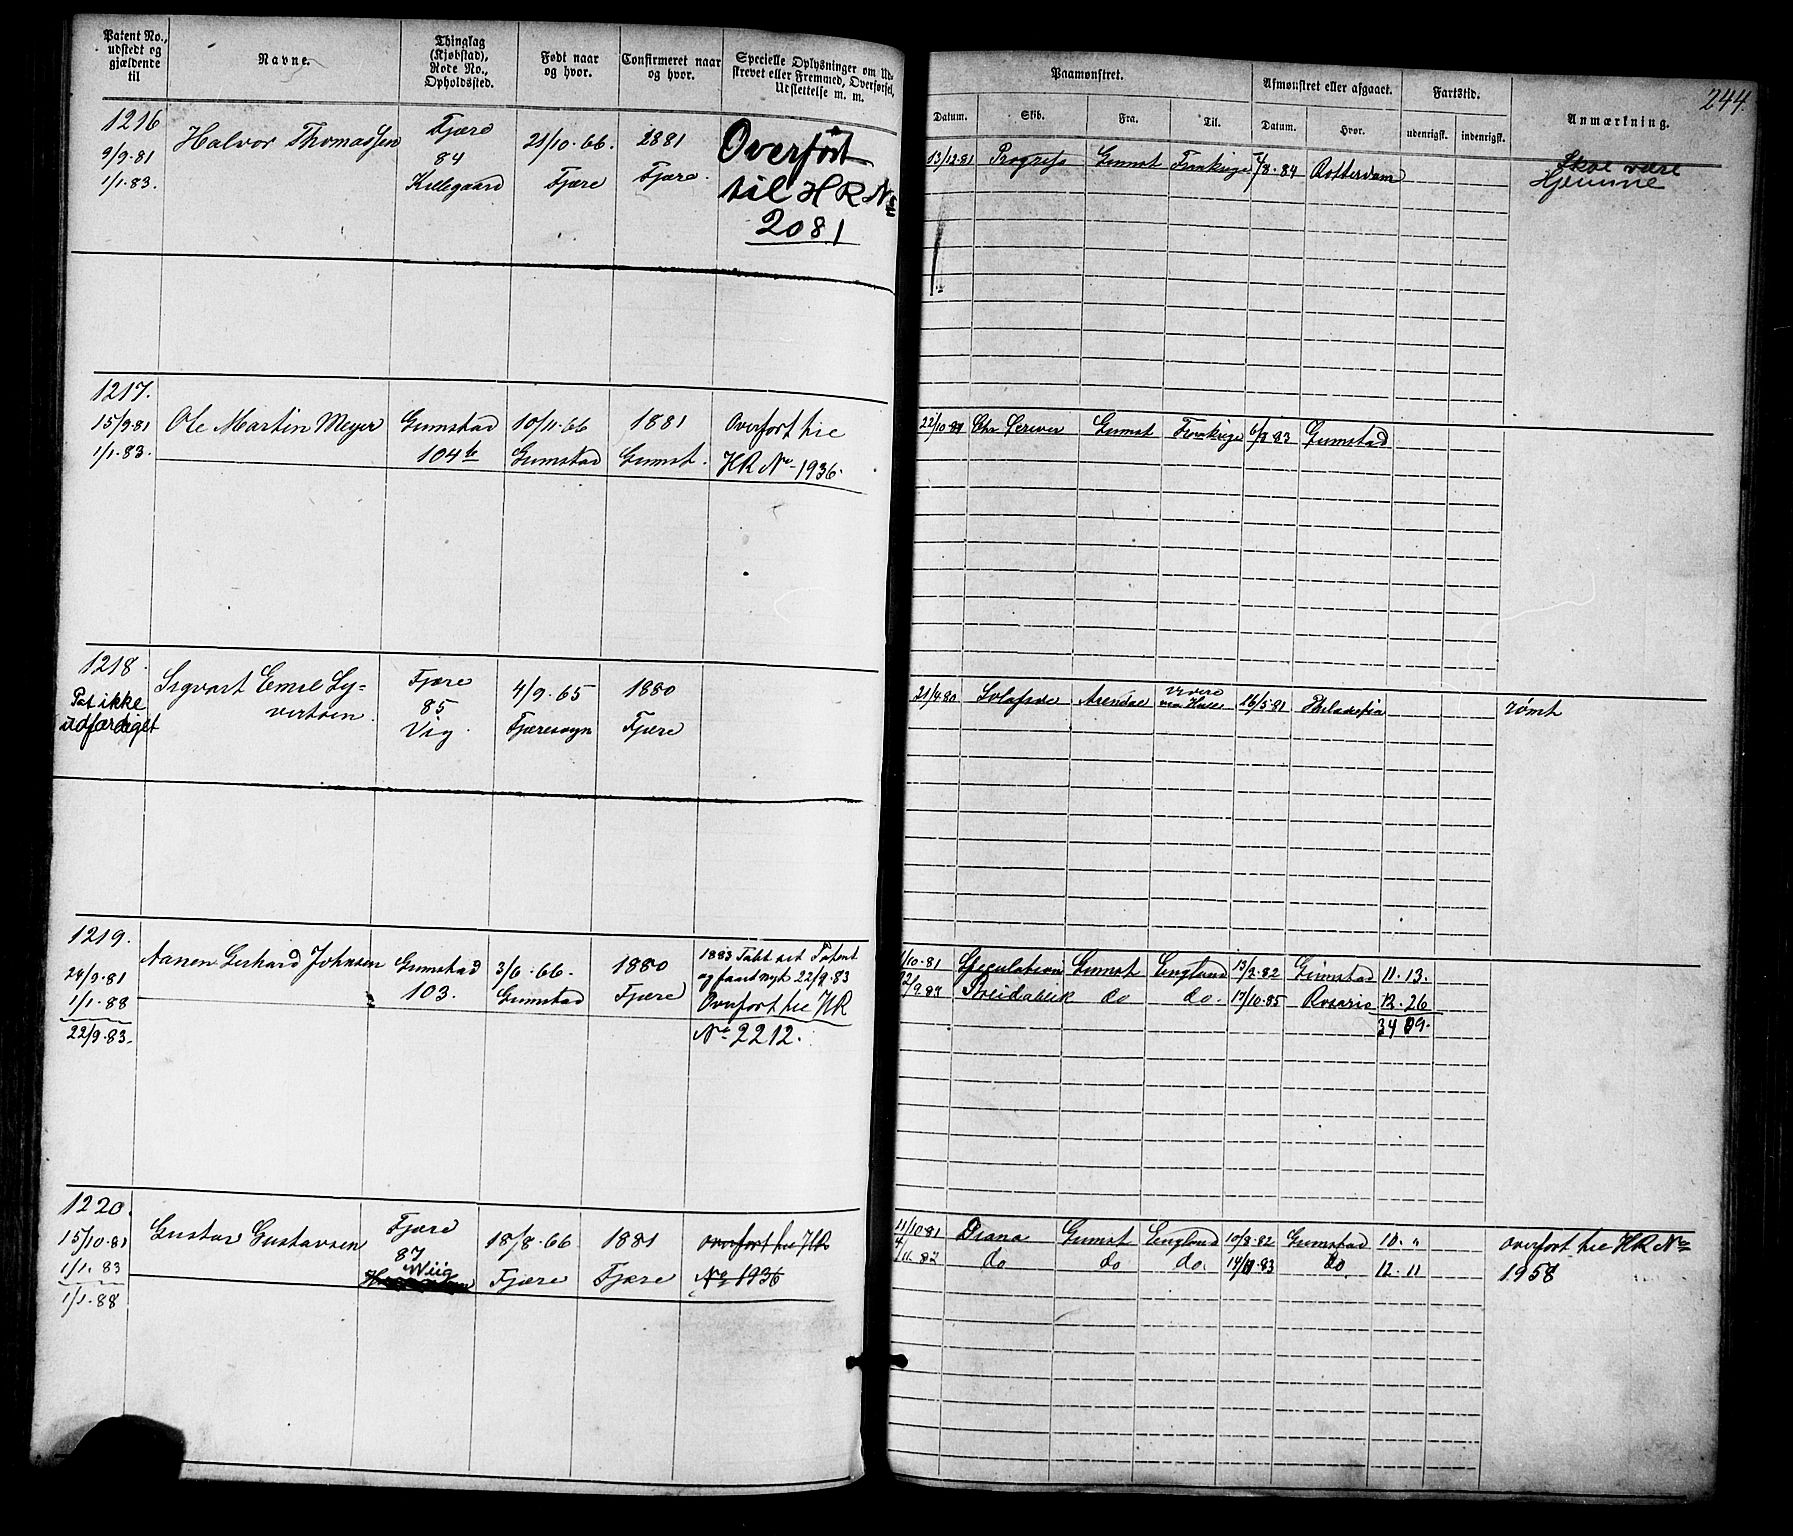 244.
Patent No., udstedt og gjældende til
Navne.
Thinglag (Kjøbstad), Rode No., Opholdssted.
Født naar og hvor.
Confirmeret naar og hvor.
Specielle Oplysninger om Udskrevet eller Fremmed, Overførsel, Udslettelse m. m.
Paamønstret.
Afmønstret eller afgaaet.
Fartstid.
Anmærkning.
Datum. Skib. Fra. Til. Datum. Hvor. udenrigsk. indenrigsk.
1216
9/9.81
1/1.83.
Halvor Thomassen
Fjære
84
Killegaard
21/10.66.
Fjære
1881
Fjære.
Overført
til HR No
2081
13/12.81 Progress Grmst Frankrige 4/8.84 Rotterdam
Skal være
Hjemme
1217.
15/9.81
1/1.83.
Ole Martin Meyer
Grimstad
104b
10/11.66
Grimstad
1881
Grimst.
Overført til
HR No 1936.
22/10.81 Chr Scriver Grmst Frankrige 6/9 83 Grimstad
1218.
Pat ikke
udfærdiget
Sigvart Emil Sy=
vertsen.
Fjære
85
Vig.
4/9.65
Fjæresogn
1880
Fjære
21/4.80 Solafide Arendal via Hull 16/5.81 Philadelfia
rømt
1219.
24/9.81
1/1.88
22/9.83.
Aanen Gerhard Johnsen
Grimstad
103.
3/6.66.
Grimstad
1880
Fjære
1883 Tabt sit Patent
og faaet nyt 22/9.83
Overført til HR
No 2212.
1/10.81 Speculation Grmst England 13/9.82 Grimstad 11.13.
22/9.83 Breidablik do do. 17/10.85 Rosario
34 09.
1220.
15/10.81
1/1.83
1/1.88
Gustav Gustavsen
Fjære
87
Wiig
18/8.66
Fjære
1881
Fjære
Overført til HR
No 1936
11/10.81 Diana Grmst England 10/8.82 Grimstad 10. „
4/11.82 do do do. do 12.11
Overført til HR No
1958